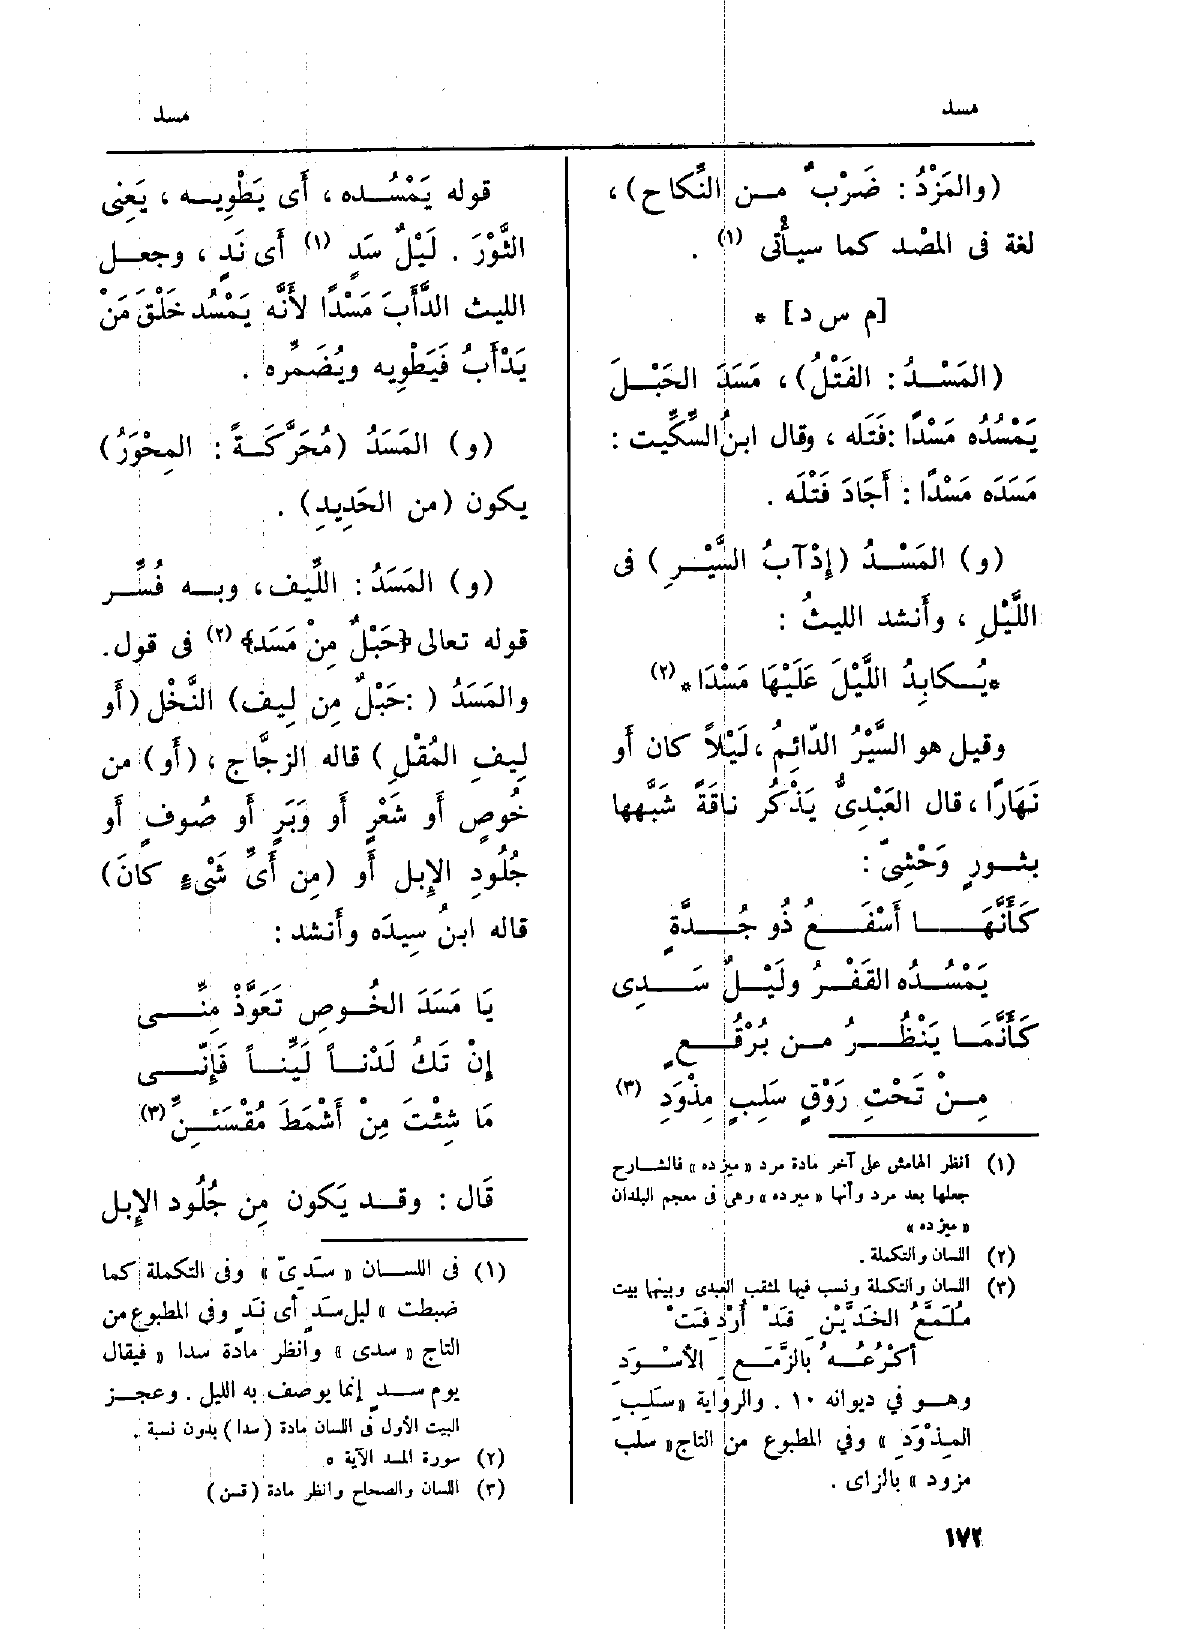 مسد
مسد
(والمَزْدُ : ضَرْبٌ مـن النِّكاحِ) ،
لغة فى المصْد كما سيأْتى (١) .
[م س د] *
(المَسْـدُ : الفَتْلُ) ، مَسَدَ الحَبْـلَ
يَمْسُدُه مَسْدًا : فَتَله ، وقال ابنُ السِّكِّيت :
مَسَدَه مَسْدًا : أَجَادَ فَتْلَه .
(و) المَسْـدُ (إِدْآبُ السَّيْـرِ ) فى
اللَّيْلِ ، وأَنشد الليثُ :
*يُـكابِدُ اللَّيْلَ عَلَيْهَا مَسْدَا* (٢)
وقيل هو السَّيْرُ الدّائِمُ ، لَيْلاً كان أَو
نَهَارًا ، قال العَبْدِىُّ يَذْكُر ناقَةً شَبَّهها
بثـورٍ وَحْشِىّ :
كَأَنَّهَـا أَسْفَـعُ ذُو جُـدَّةٍ
يَمْسُـدُه القَفْـرُ ولَيْـلٌ سَـدِى
كَأَنَّمَـا يَنْظُـرُ مـن بُرْقُـعٍ
مِـنْ تَحْتِ رَوْقٍ سَلِبٍ مِذْوَدِ (٣)
(١) انظر الهامش على آخر مادة مرد « ميزده » فالشـارح
جعلها بعد مرد وأنها « ميرده » وهى فى معجم البلدان
« ميزده »
(٢) اللسان والتكملة .
(٣) اللسان والتكملة ونسب فيها لمثقب العبدى وبينها بيت
مُلَمَّعُ الخَدَّيْنِ قَدْ أُرْدِفَتْ
أَكْرُعُـهُ بالزَّمَـعِ الأَسْـوَدِ
وهـو في ديوانه ١٠ . والرواية « سَلِبِ
المِذْوَدِ » وفي المطبوع من التاج « سلب
مزود » بالزاى .
قوله يَمْسُـده ، أَى يَطْوِيـه ، يَعْنِى
الثَّوْرَ . لَيْلٌ سَدٍ (١) أَى نَدٍ ، وجعـل
الليث الدَّأَبَ مَسْدًا لأَنَّه يَمْسُد خَلْقَ مَنْ
يَدْأَبُ فَيَطْوِيه ويُضَمِّره .
(و) المَسَدُ (مُحَرَّكَـةً : المِحْوَرُ)
يكون (من الحَدِيدِ) .
(و) المَسَدُ : اللِّيف ، وبـه فُسِّـر
قوله تعالى ﴿حَبْلٌ مِنْ مَسَد﴾ (٢) فى قول.
والمَسَدُ ( : حَبْلٌ مِن لِيف) النَّخْل (أَو
لِيفِ المُقْلِ ) قاله الزجّاج ، (أَو) من
خُوصٍ أَو شَعْرٍ أَو وَبَرٍ أَو صُوفٍ أَو
جُلُودِ الإِبل أَو (مِن أَىِّ شَىْءٍ كانَ)
قاله ابنُ سِيدَه وأَنشد :
يَا مَسَدَ الخُـوصِ تَعَوَّذْ مِنِّـى
إِنْ تَكُ لَدْنـاً لَيِّنـاً فَإِنِّـى
مَا شِئْتَ مِنْ أَشْمَطَ مُقْسَئِنِّ (٣)
قَال : وقـد يَكون مِن جُلُود الإِبل
(١) فى اللسـان « سَدِىّ » وفى التكملة كما
ضبطت « ليل سَدٍ أى نَدٍ وفى المطبوع من
التاج « سدى » وانظر مادة سدا « فيقال
يوم سـدٍ إنما يوصف به الليل . وعجـز
البيت الأول فى اللسان مادة (سدا) بدون نسبة .
(٢) سورة المسد الآية ٥
(٣) اللسان والصحاح وانظر مادة (قسن)
١٧٢